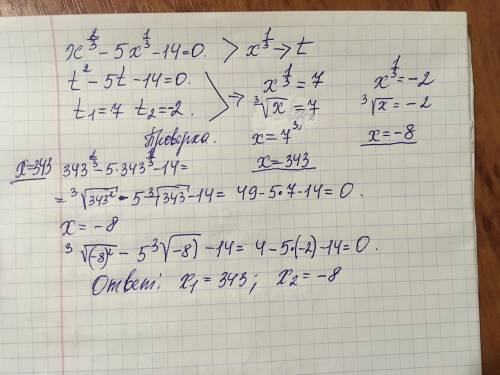 x^{2/3} - 5x^{1/3} - 14 = 0. > x^{1/3} → t
t² - 5t - 14 = 0.
t₁ = 7 t₂ = -2.
→ x^{1/3} = 7
∛x = 7
x = 7³
x = 343
x^{1/3} = -2
∛x = -2
x = -8
Проверка.
x=343 343^{2/3} - 5·343^{1/3} - 14 =
= ∛343² - 5·∛343 - 14 = 49 - 5·7 - 14 = 0.
x = -8
∛(-8)² - 5∛(-8) - 14 = 4 - 5·(-2) - 14 = 0.
Ответ: x₁ = 343; x₂ = -8